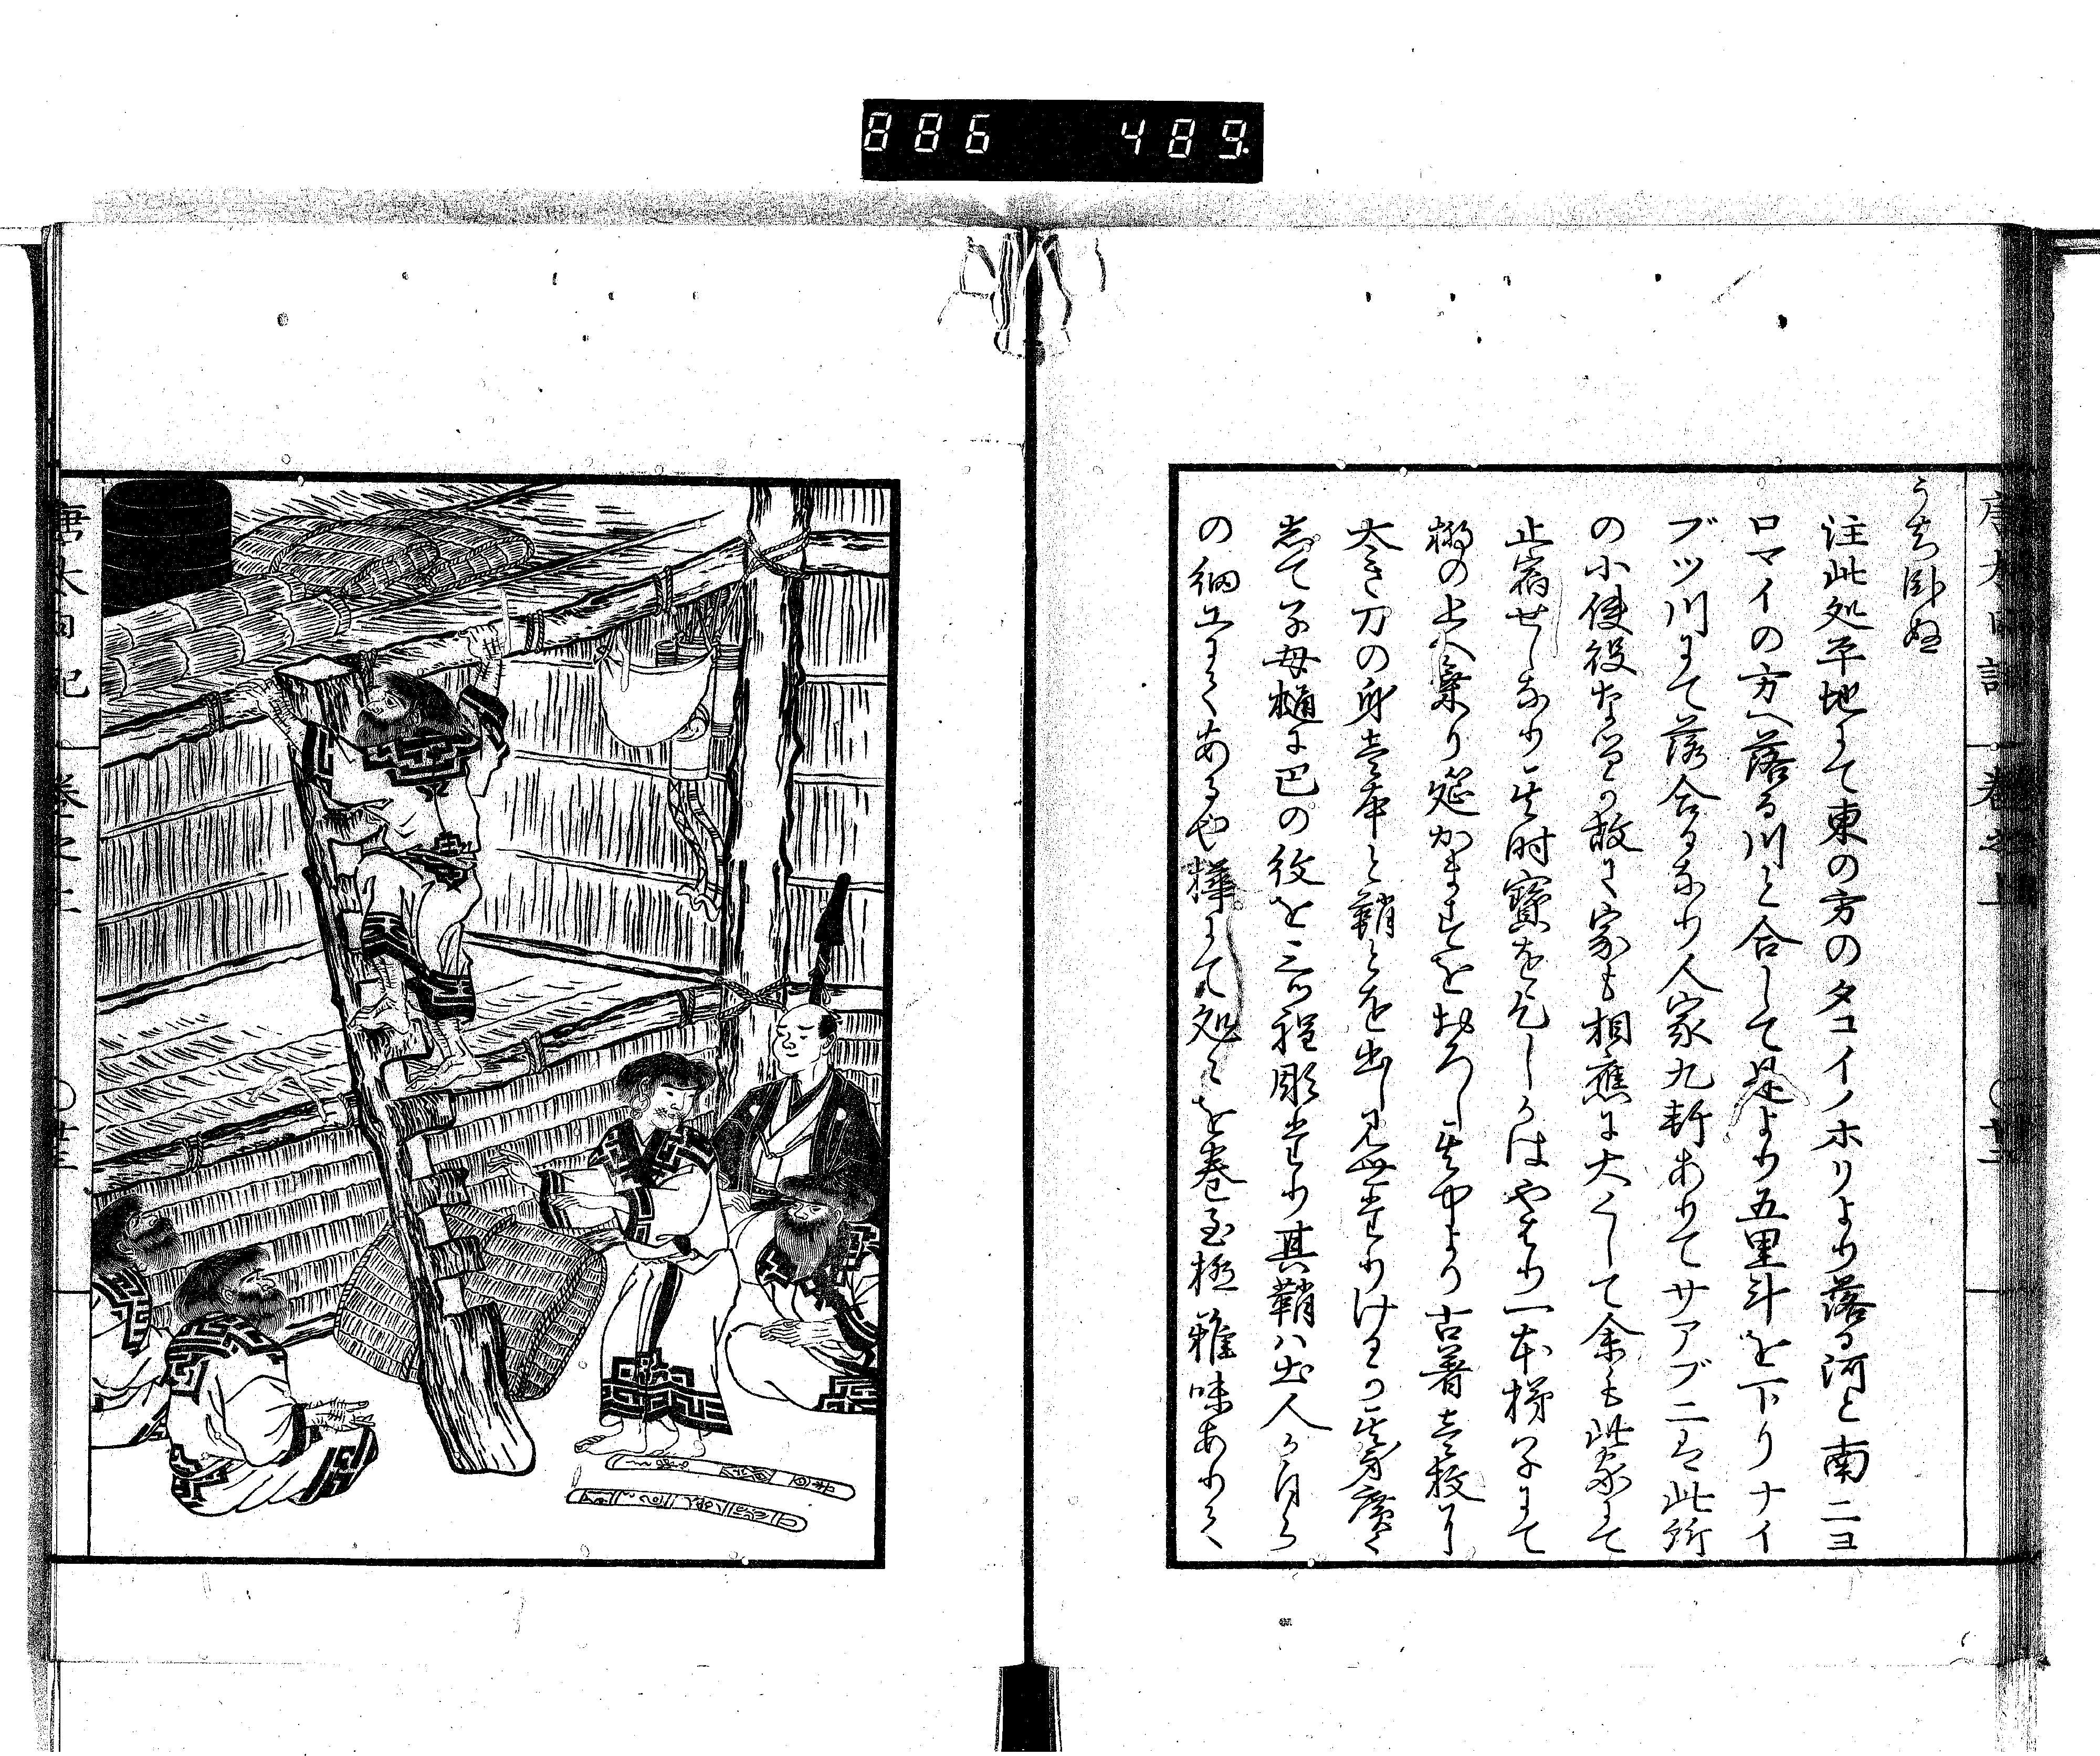 886 489
うち臥ぬ
注此処平地にて東の方のタコイノホリより落る河と南ニヨ
ロマイの方へ落る川と合して是より五里斗を下りナイ
ブツ川にて落合るなり人家九軒ありてサアブニは此所
の小使役なるか故に家も相應に大くして余も此家にて
止宿せしなり其時寶を乞しかはやはり一本梯子にて
棚の上へ乗り筵かますをおろし其中より古着 枚に
大き刀の身 本と鞘とを出し見せたりけるか其身廣く
して子母樋に巴の紋を三ツ程彫たり其鞘ハ土人か自ら
の細工にてあるや樺にて処々を巻至極雅味ありて
唐太日記
巻之上